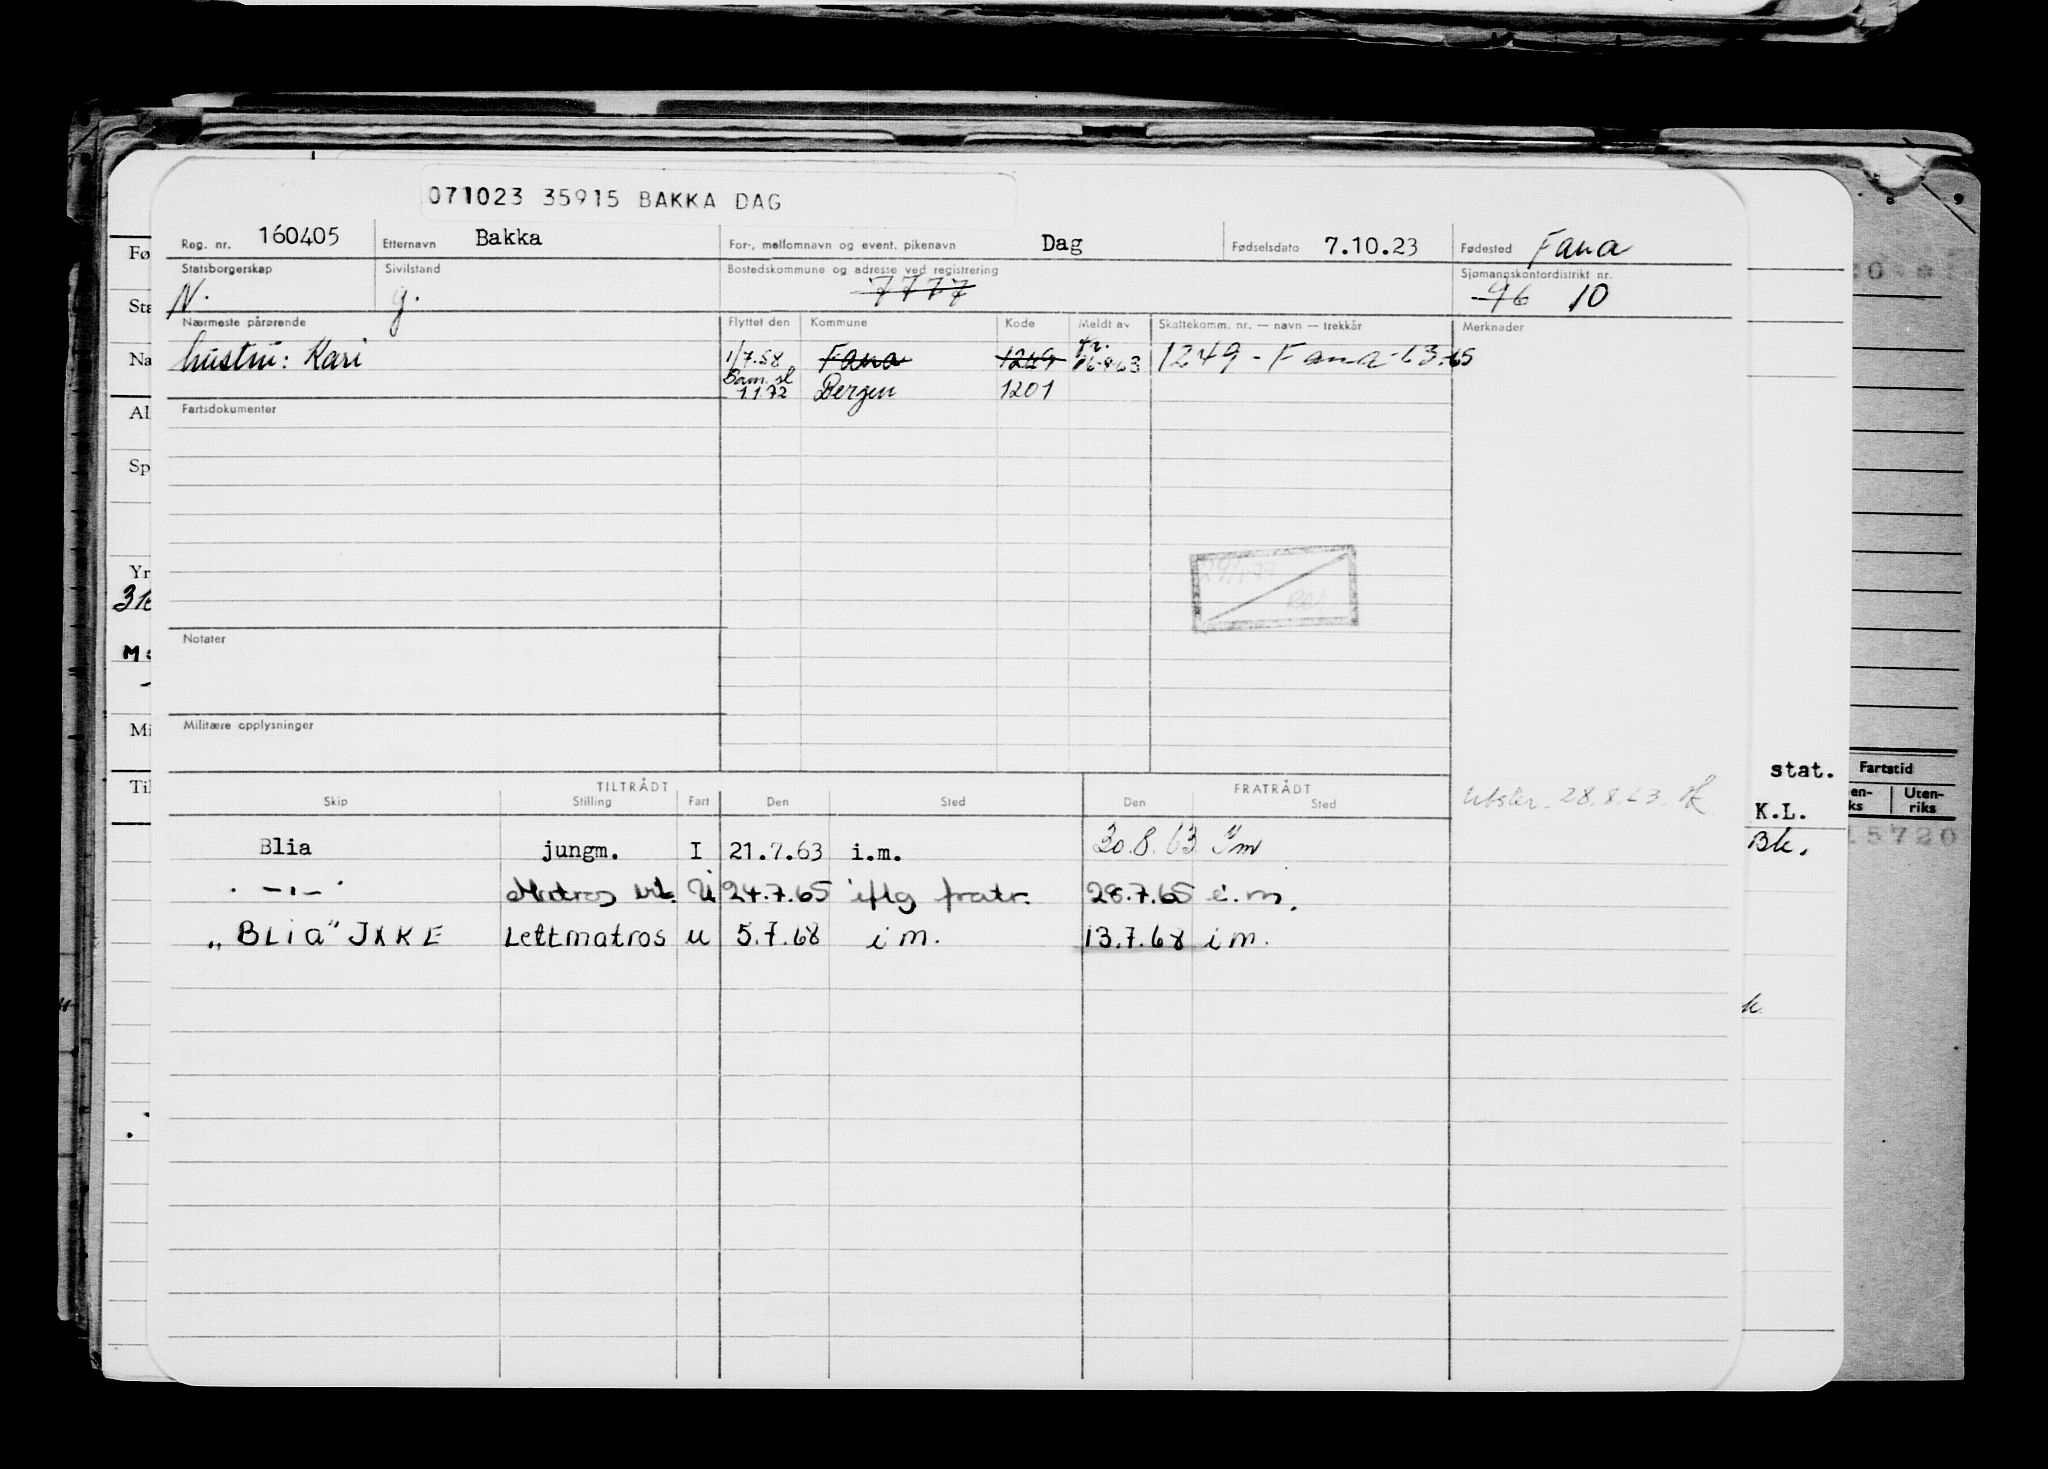 071023 35915 BAKKA DAG
Reg. nr. 160405 Etternavn Bakka For-, mellomnavn og event. pikenavn Dag Fødselsdato 7.10.23 Fødested Fana
Statsborgerskap Sivilstand Bostedskommune og adresse ved registrering Sjømannskontordistrikt nr.
N. g. 7777 96 10
Nærmeste pårørende Flyttet den Kommune Kode Meldt av Skattekomm. nr. — navn — trekkår Merknader
hustru: Kari 1/7.58 Fana 1249 fr. 16.8.63 1249 - Fana - 63.65
Sam.sl 1.1.72 Bergen 1201
Fartsdokumenter
Notater
Militære opplysninger
TILTRÅDT FRATRÅDT
Skip Stilling Fart Den Sted Den Sted
28.8.63
Blia jungm. I 21.7.63 i.m. 30.8.63 i m
- " - Matros U 24.7.65 iflg fratr. 28.7.65 i.m.
"BLia" JXKE Lettmatros u 5.7.68 i m. 13.7.68 i m.
Fø
Sta
Na
Al
Sp
Yr
Mi
Til
stat.
K.L.
Bk.
Fartstid
en-
ks
Uten-
riks
15720